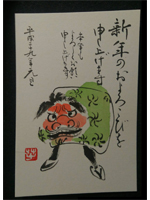 新年のおよろこびを
申し上げます
本年も
よろしくお願い
申し上げます
平成十九年元旦